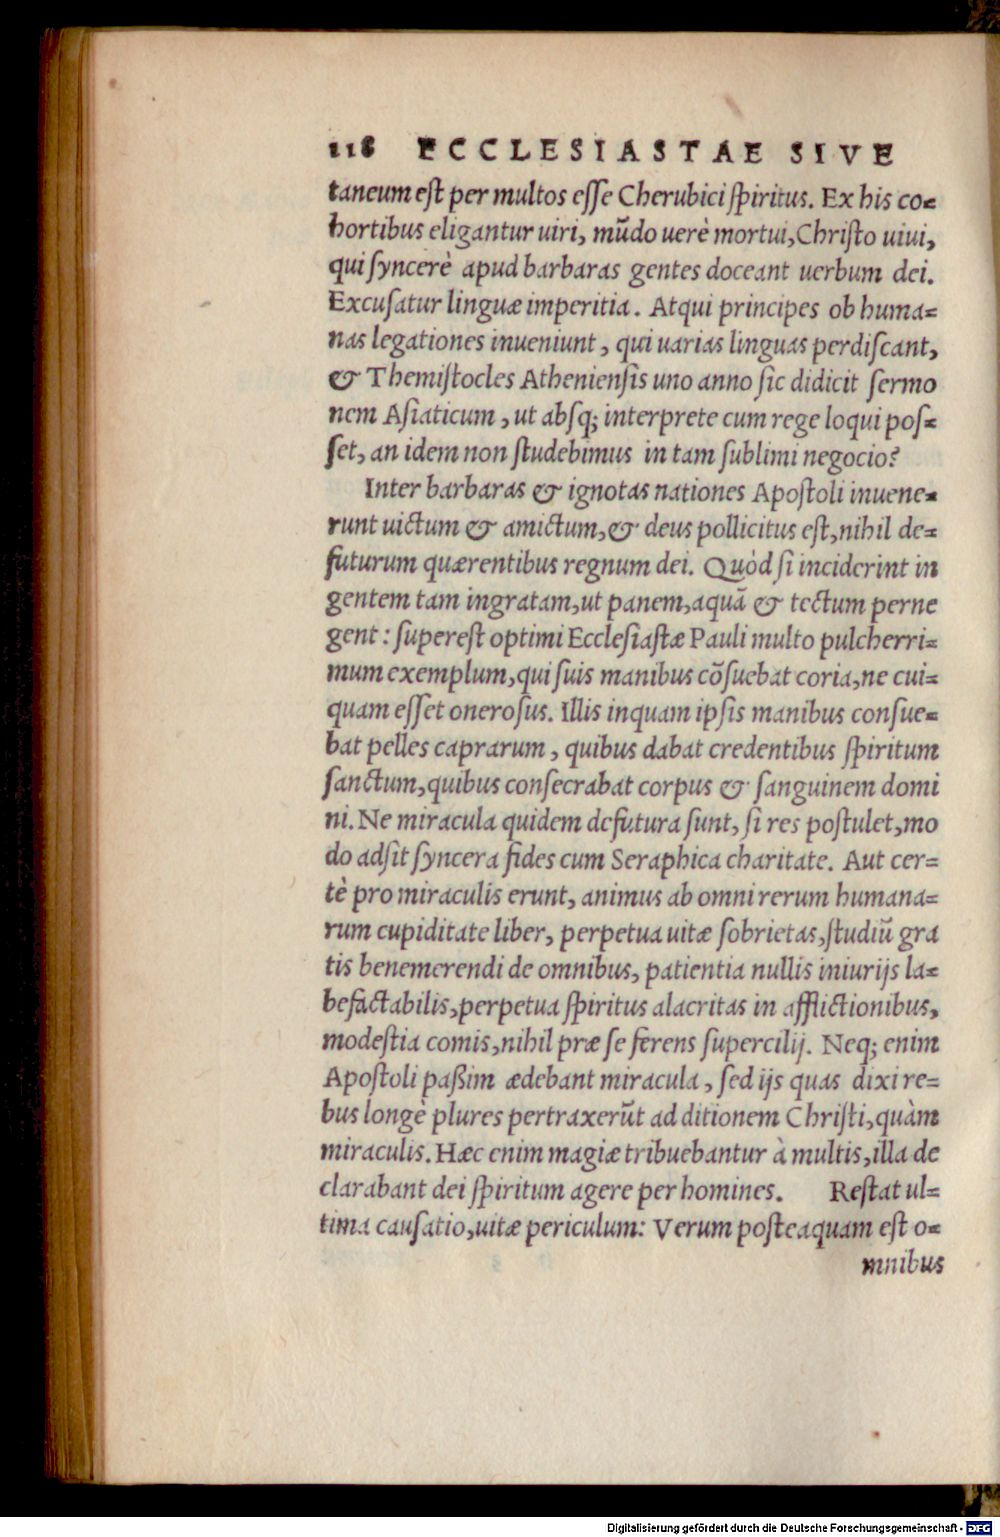 118 ECCLESIASTAE SIVE
taneum est per multos esse Cherubici spiritus. Ex his co=
hortibus eligantur uiri, mũdo uerè mortui, Christo uiui,
qui syncerè apud barbaras gentes doceant uerbum dei.
Excusatur linguæ imperitia. Atqui principes ob huma=
nas legationes inueniunt, qui uarias linguas perdiscant,
& Themistocles Atheniensis uno anno sic didicit sermo
nem Asiaticum, ut absq; interprete cum rege loqui pos=
set, an idem non studebimus in tam sublimi negocio?
Inter barbaras & ignotas nationes Apostoli inuene=
runt uictum & amictum, & deus pollicitus est, nihil de=
futurum quærentibus regnum dei. Quòd si inciderint in
gentem tam ingratam, ut panem, aquã & tectum perne
gent: superest optimi Ecclesiastæ Pauli multo pulcherri=
mum exemplum, qui suis manibus cõsuebat coria, ne cui=
quam esset onerosus. Illis inquam ipsis manibus consue=
bat pelles caprarum, quibus dabat credentibus spiritum
sanctum, quibus consecrabat corpus & sanguinem domi
ni. Ne miracula quidem defutura sunt, si res postulet, mo
do adsit syncera fides cum Seraphica charitate. Aut cer=
tè pro miraculis erunt, animus ab omni rerum humana=
rum cupiditate liber, perpetua uitæ sobrietas, studiũ gra
tis benemerendi de omnibus, patientia nullis iniurijs la=
befactabilis, perpetua spiritus alacritas in afflictionibus,
modestia comis, nihil præ se ferens supercilij. Neq; enim
Apostoli paßim ædebant miracula, sed ijs quas dixi re=
bus longè plures pertraxerũt ad ditionem Christi, quàm
miraculis. Hæc enim magiæ tribuebantur à multis, illa de
clarabant dei spiritum agere per homines. Restat ul=
tima causatio, uitæ periculum: Verum posteaquam est o=
mnibus
Digitalisierung gefördert durch die Deutsche Forschungsgemeinschaft - DFG